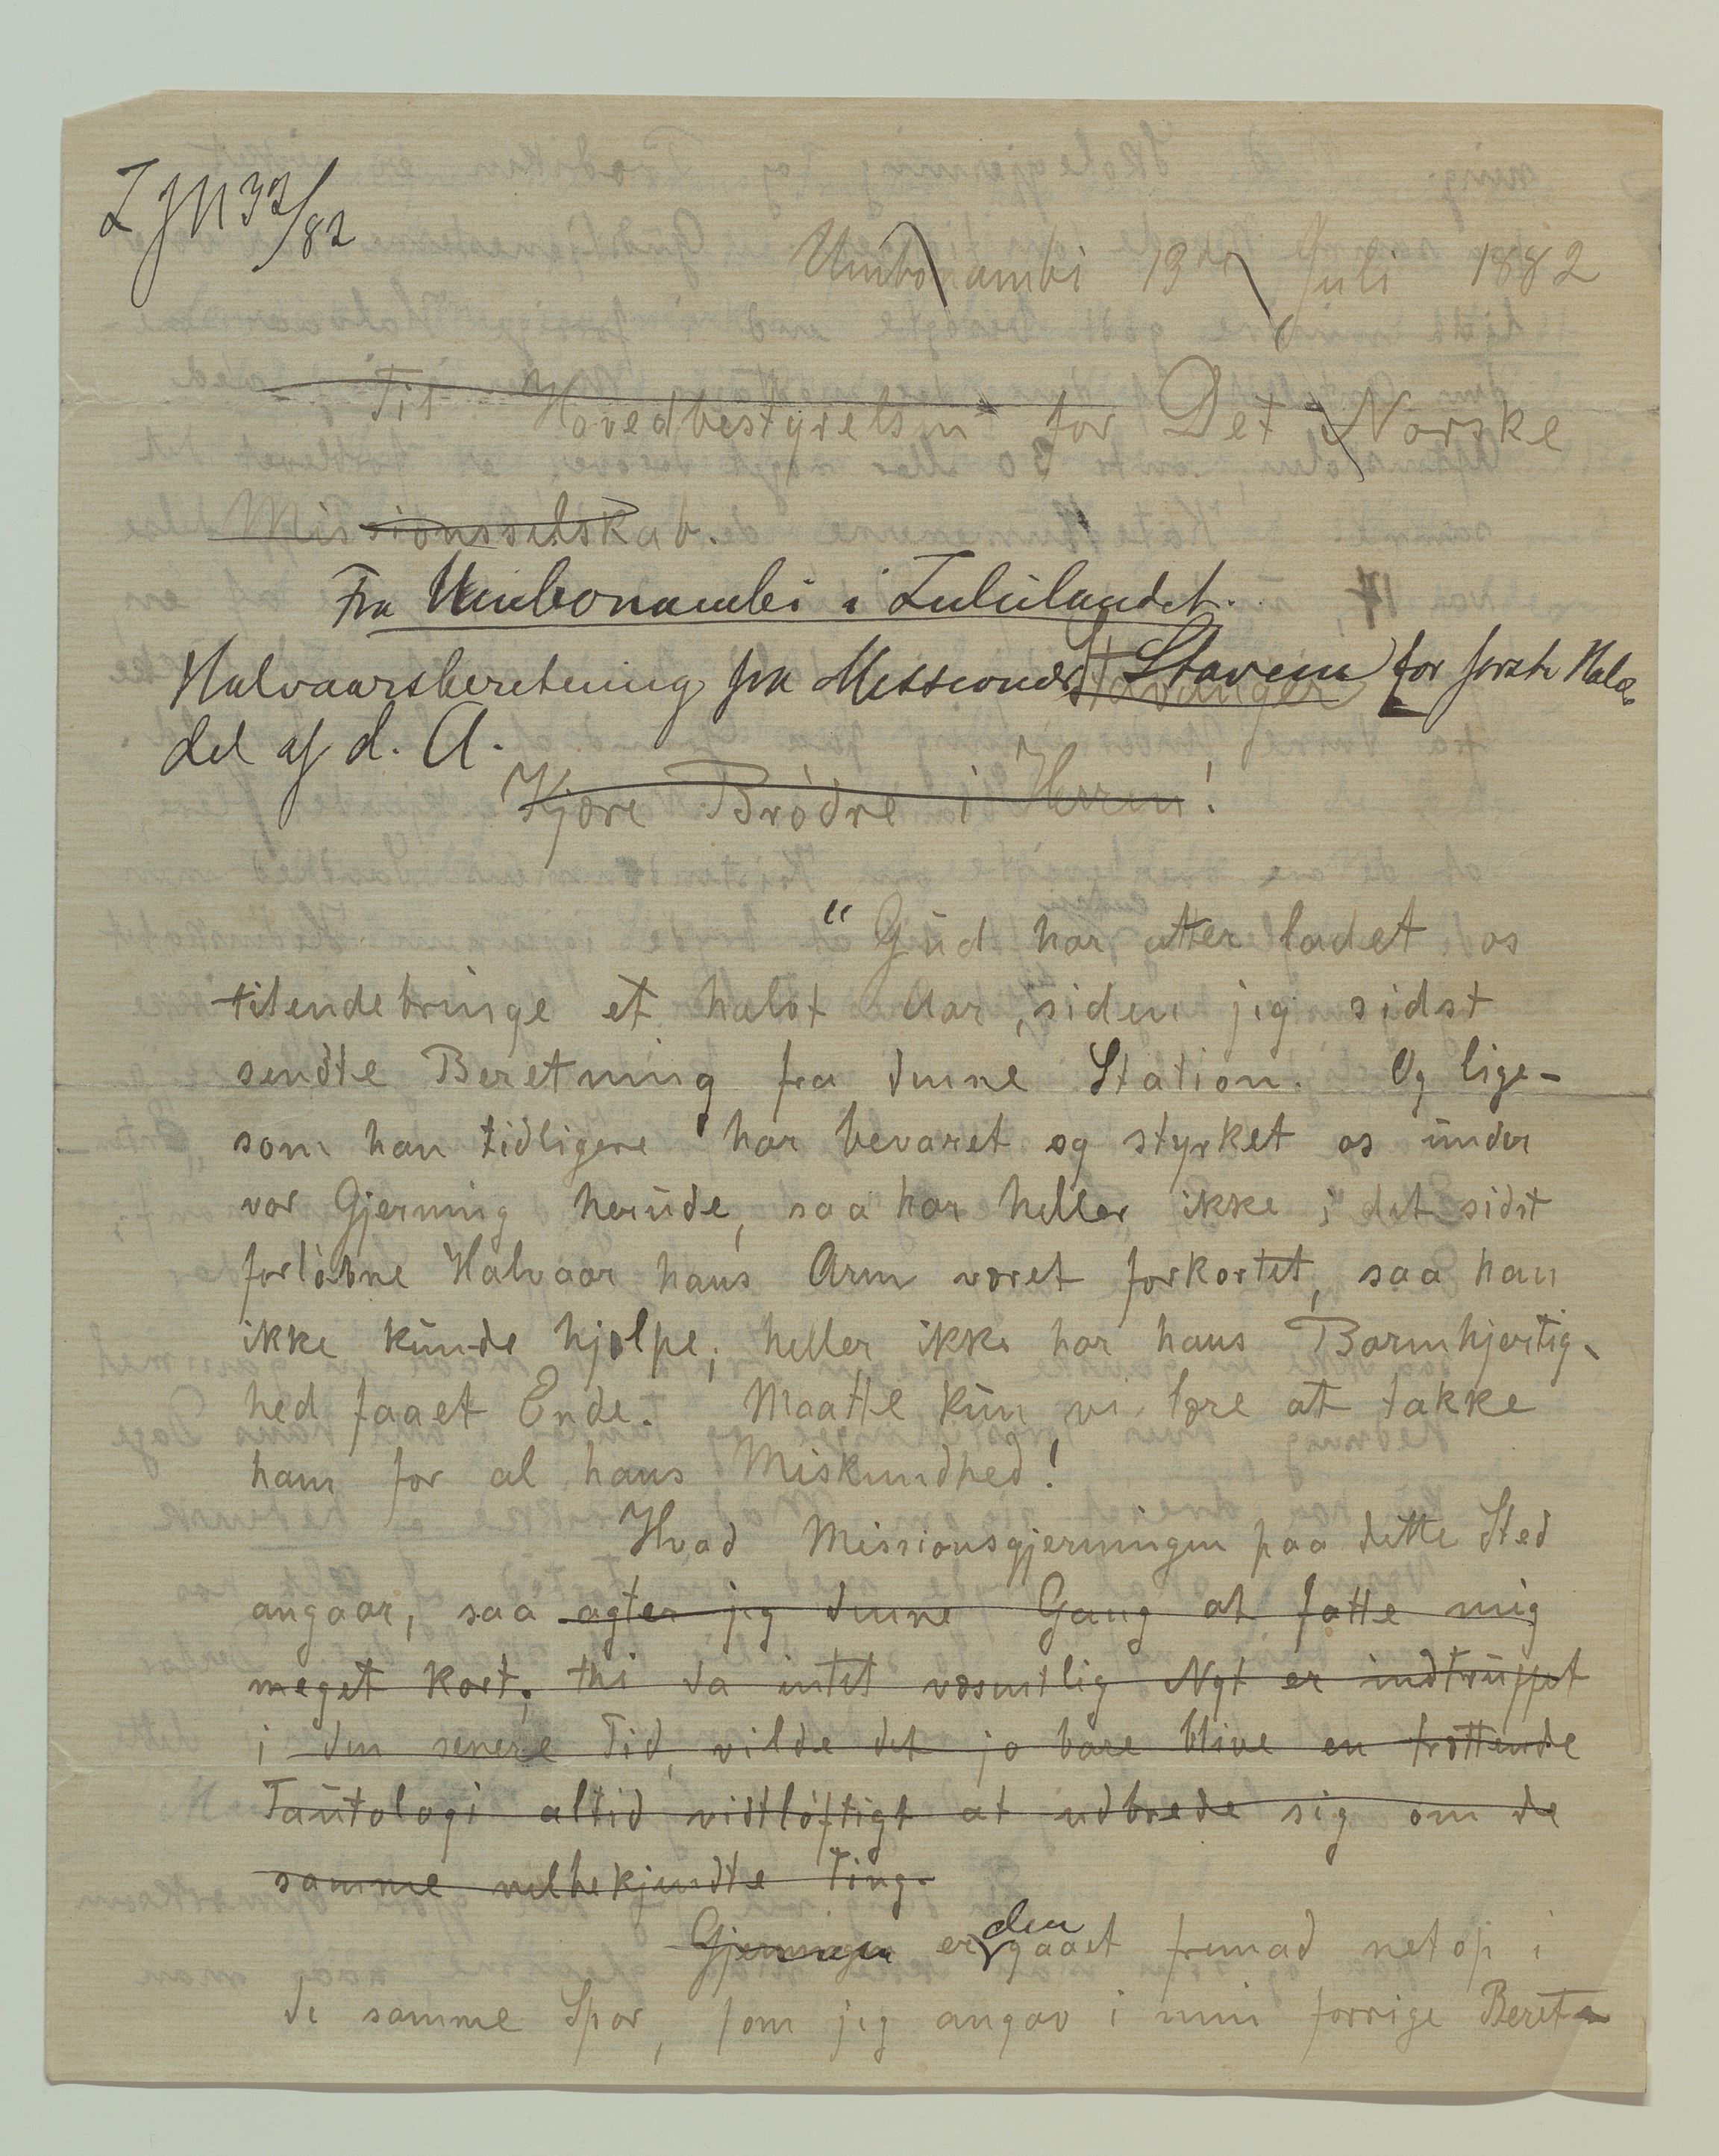 Z J N 32/82
Umbonambi 13de Juli 1882
Til Hovedbestyrelsen for Det Norske
Missionsselskab.
Fra Umbonambi i Zululandet.
Stavanger
Halvaarsberetning fra Missionær Stavem for første Halv-
del af d. A.
Kjære Brødre i Herren!
"Gud har atter ladet os
tilendebringe et halvt Aar, siden jeg sidst
sendte Beretning fra denne Station. Og lige-
som han tidligere har bevaret og styrket os under
vor Gjerning herude, saa har heller ikke i det sidst
forløbne Halvaar hans Arm været forkortet, saa han
ikke kunde hjælpe; heller ikke har hans Barmhjertig-
hed faaet Ende. Maatte kun vi lære at takke
ham for al hans Miskundhed!
Hvad Missionsgjerningen paa dette Sted
angaar, saa agter jeg denne Gang at fatte mig
meget kort; thi da intet væsentlig Nyt er indtruppet
i den senere Tid, vilde det jo bare blive en trættende
Tautologi altid vidtløftigt at udbrede sig om de
samme velbekjendte Ting.
Gjerningen er den gaaet fremad netop i
de samme Spor, som jeg angav i min forrige Beret-